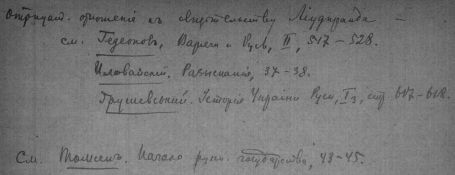 Отрицат. отношение къ свидѣтельству Ліудпранда —
см. Гедеоновъ, Варяги и Русь, II, 517-528.
Иловайскій. Разысканія, 37-38.
Грушевський. Історія України Руси, I₃, стр. 617-618.
См. Томсенъ. Начало русск. государства, 43-45.